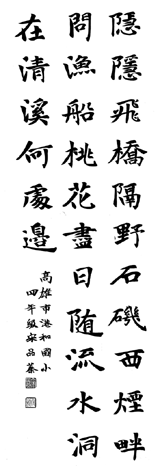 隱隱飛橋隔野石磯西煙畔
問漁船桃花盡日随流水洞
在清溪何處邊
高雄市港和國小
四年級宋品蓁